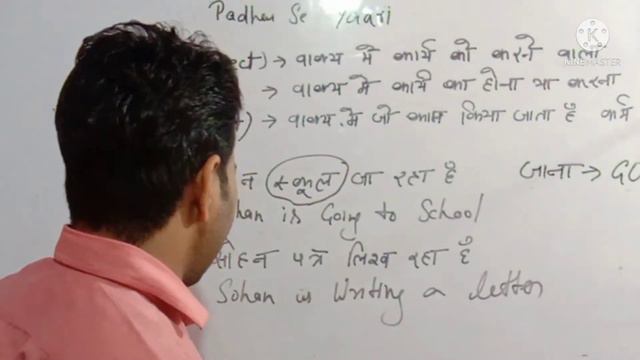 Padhen Se yaari
ect) → वाक्य में कार्य को करने वाला
→ वाक्य में कार्य का होना या करना
) → वाक्य में जो काम किया जाता है कर्म
न स्कूल जा रहा है जाना → GO
han is Going to School
सोहन पत्र लिख रहा है
Sohan is Writing a letter
KINEMASTER